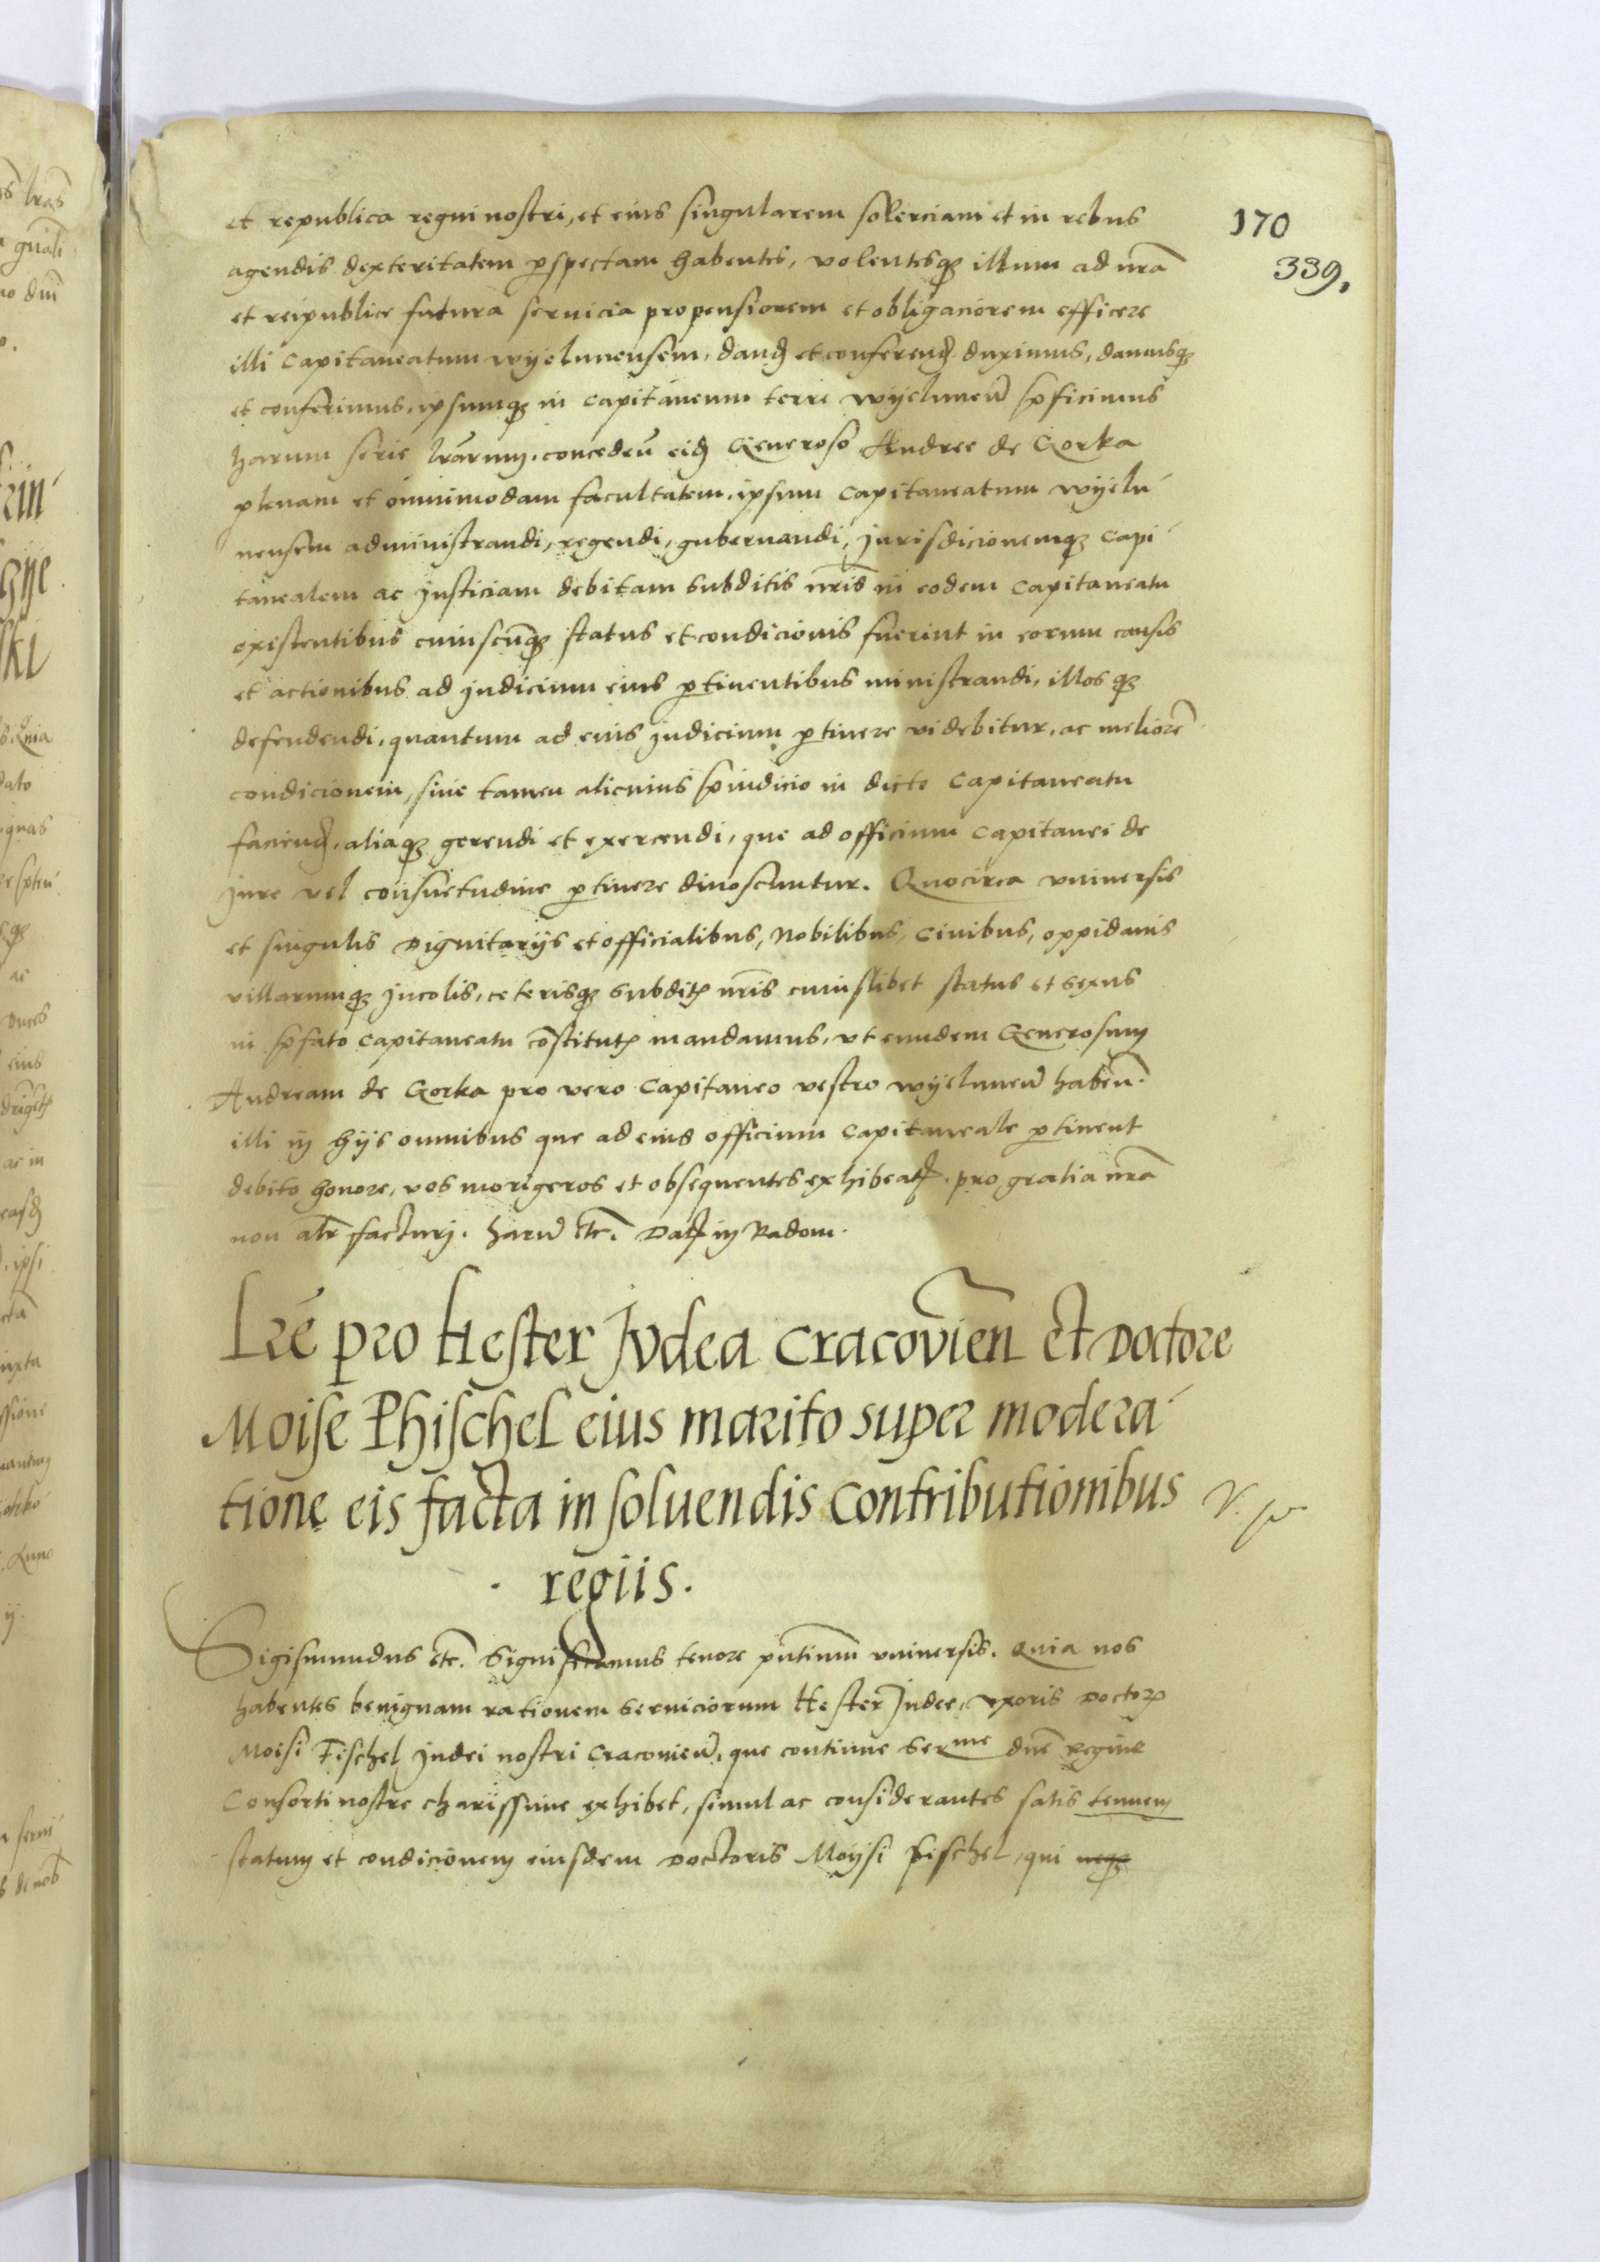 et republica regni nostri, et eius singularem solerciam et in rebus
170
agendis dexteritatem pspectam habentes, volentesq illum ad nrã
339.
et reipublice futura seruicia propensiorem et obligaciorem efficere
illi Capitaneatum wyelunensem, dand et conferend duximus, damusq
et conferimus, ipsumq in capitaneum terre wyelunen pficimus
harum serie lrarum, conceden eid Generoso Andree de Gorka
plenam et omnimodam facultatem, ipsum capitaneatum wyelu
nensem administrandi, regendi, gubernandi, Jurisdicionemq capi
tanealem ac Justiciam debitam subditis nris in eodem Capitaneatu
existentibus cuiuscunq status et condicionis fuerint in eorum causis
et actionibus ad Judicium eius ptinentibus ministrandi, illosq
defendendi, quantum ad eius Judicium ptinere videbitur, ac meliorẽ
condicionem, sine tamen alicuius piudicio in dicto Capitaneatu
faciend, aliaq gerendi et exercendi, que ad officium Capitanei de
Jure vel consuetudine ptinere dinoscuntur. Quocirca vniuersis
et singulis Dignitarijs et officialibus, Nobilibus, Ciuibus, oppidanis
villarumq Incolis, ceterisq subdit nris cuiuslibet status et sexus
in pfato Capitaneatu cõstitut mandamus, vt eundem Generosum
Andream de Gorka pro vero Capitaneo vestro wyelunen haben.
illi in hijs omnibus que ad eius officium Capitaneale ptinent
debito honore, vos morigeros et obsequentes exhibeat. pro gratia nrã
non alr facturi. harũ etc. Dat in Radom.
Lrẽ pro Hester Judea Cracouien et Doctore
Moise Phischel eius marito super modera
tione eis facta in soluendis Contributionibus
. regiis.
Sigismundus etc. Significamus tenore pntium vniuersis. Quia nos
habentes benignam rationem seruiciorum Hester Judee, vxoris Doctor
Moisi Fischel Judei nostri Cracouien, que continue Serme dne Regine
Consorti nostre charissime exhibet, simul ac considerantes satis tenuem
statum et condicionem eiusdem Doctoris Moysi Fischel, qui neq